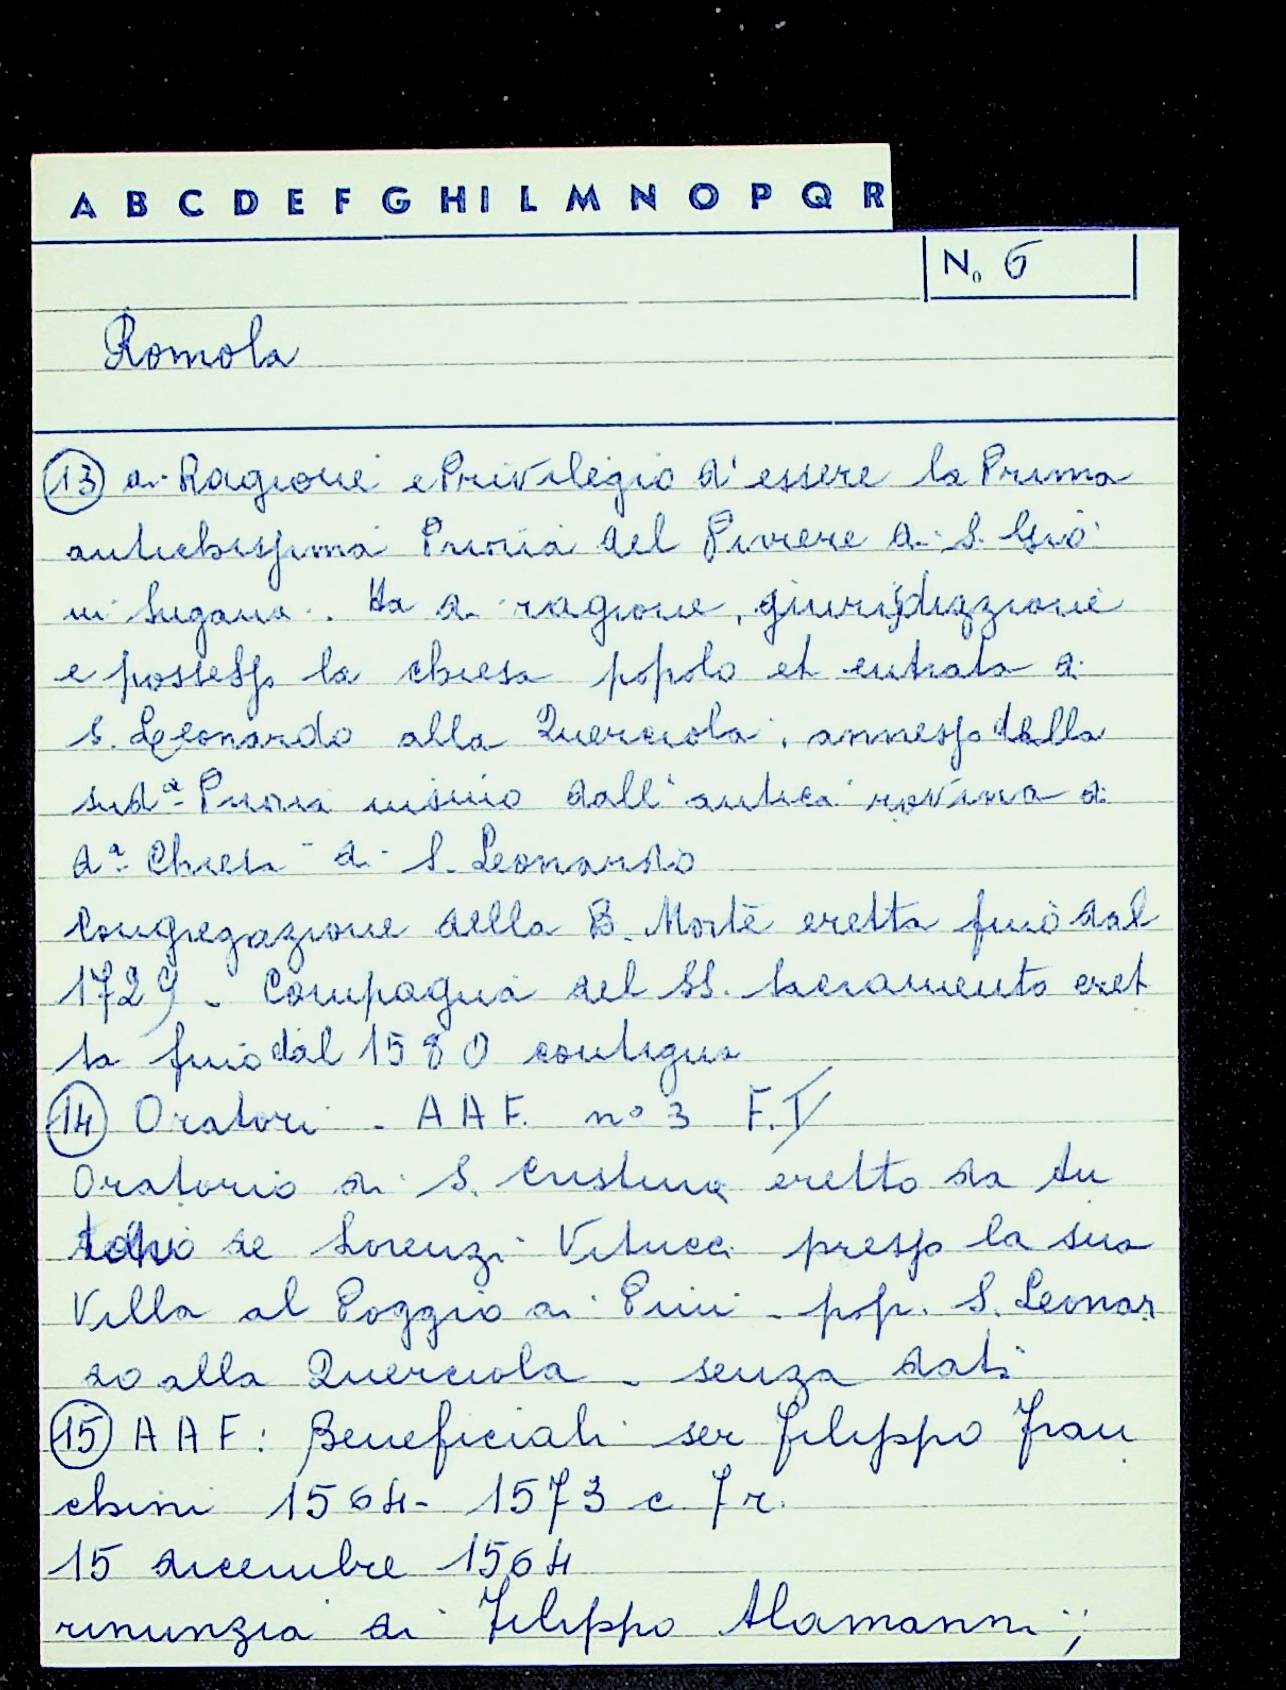 A B C D E F G H I L M N O P Q R
No 6
Romola
13 di Ragione e Privilegio d'essere la Prima
antichissima Prioria del Piviere di S. Giò
in Sugana. Ha di ragione, giurisdizzione
e possesso la chiesa popolo et entrata di
S. Leonardo alla Querciola, annesso della
sud.ª Prioria insino dall'antica rovina di
d.ª Chiesa di S. Leonardo
Congregazione della B. Morte eretta fino dal
1729 - Compagnia del SS. Sacramento eret
ta fino dal 1580 contigua
14 Oratori - A A F. n° 3 F. V
Oratorio di S. Cristina eretto da An
tonio de Lorenzi Vitucci presso la sua
Villa al Poggio ai Pini - pop. S. Leonar
do alla Querciola - senza dati
15 A A F: Beneficiali ser Filippo Fran
chini 1564 - 1573 c. 7 r.
15 dicembre 1564
rinunzia di Filippo Alamanni;